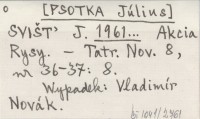 [PSOTKA Július]
SVIŠŤ J. 1961... Akcia
Rysy. – Tatr. Nov. 8,
nr 36-37: 8.
Wypadek: Vladimír
Novák.